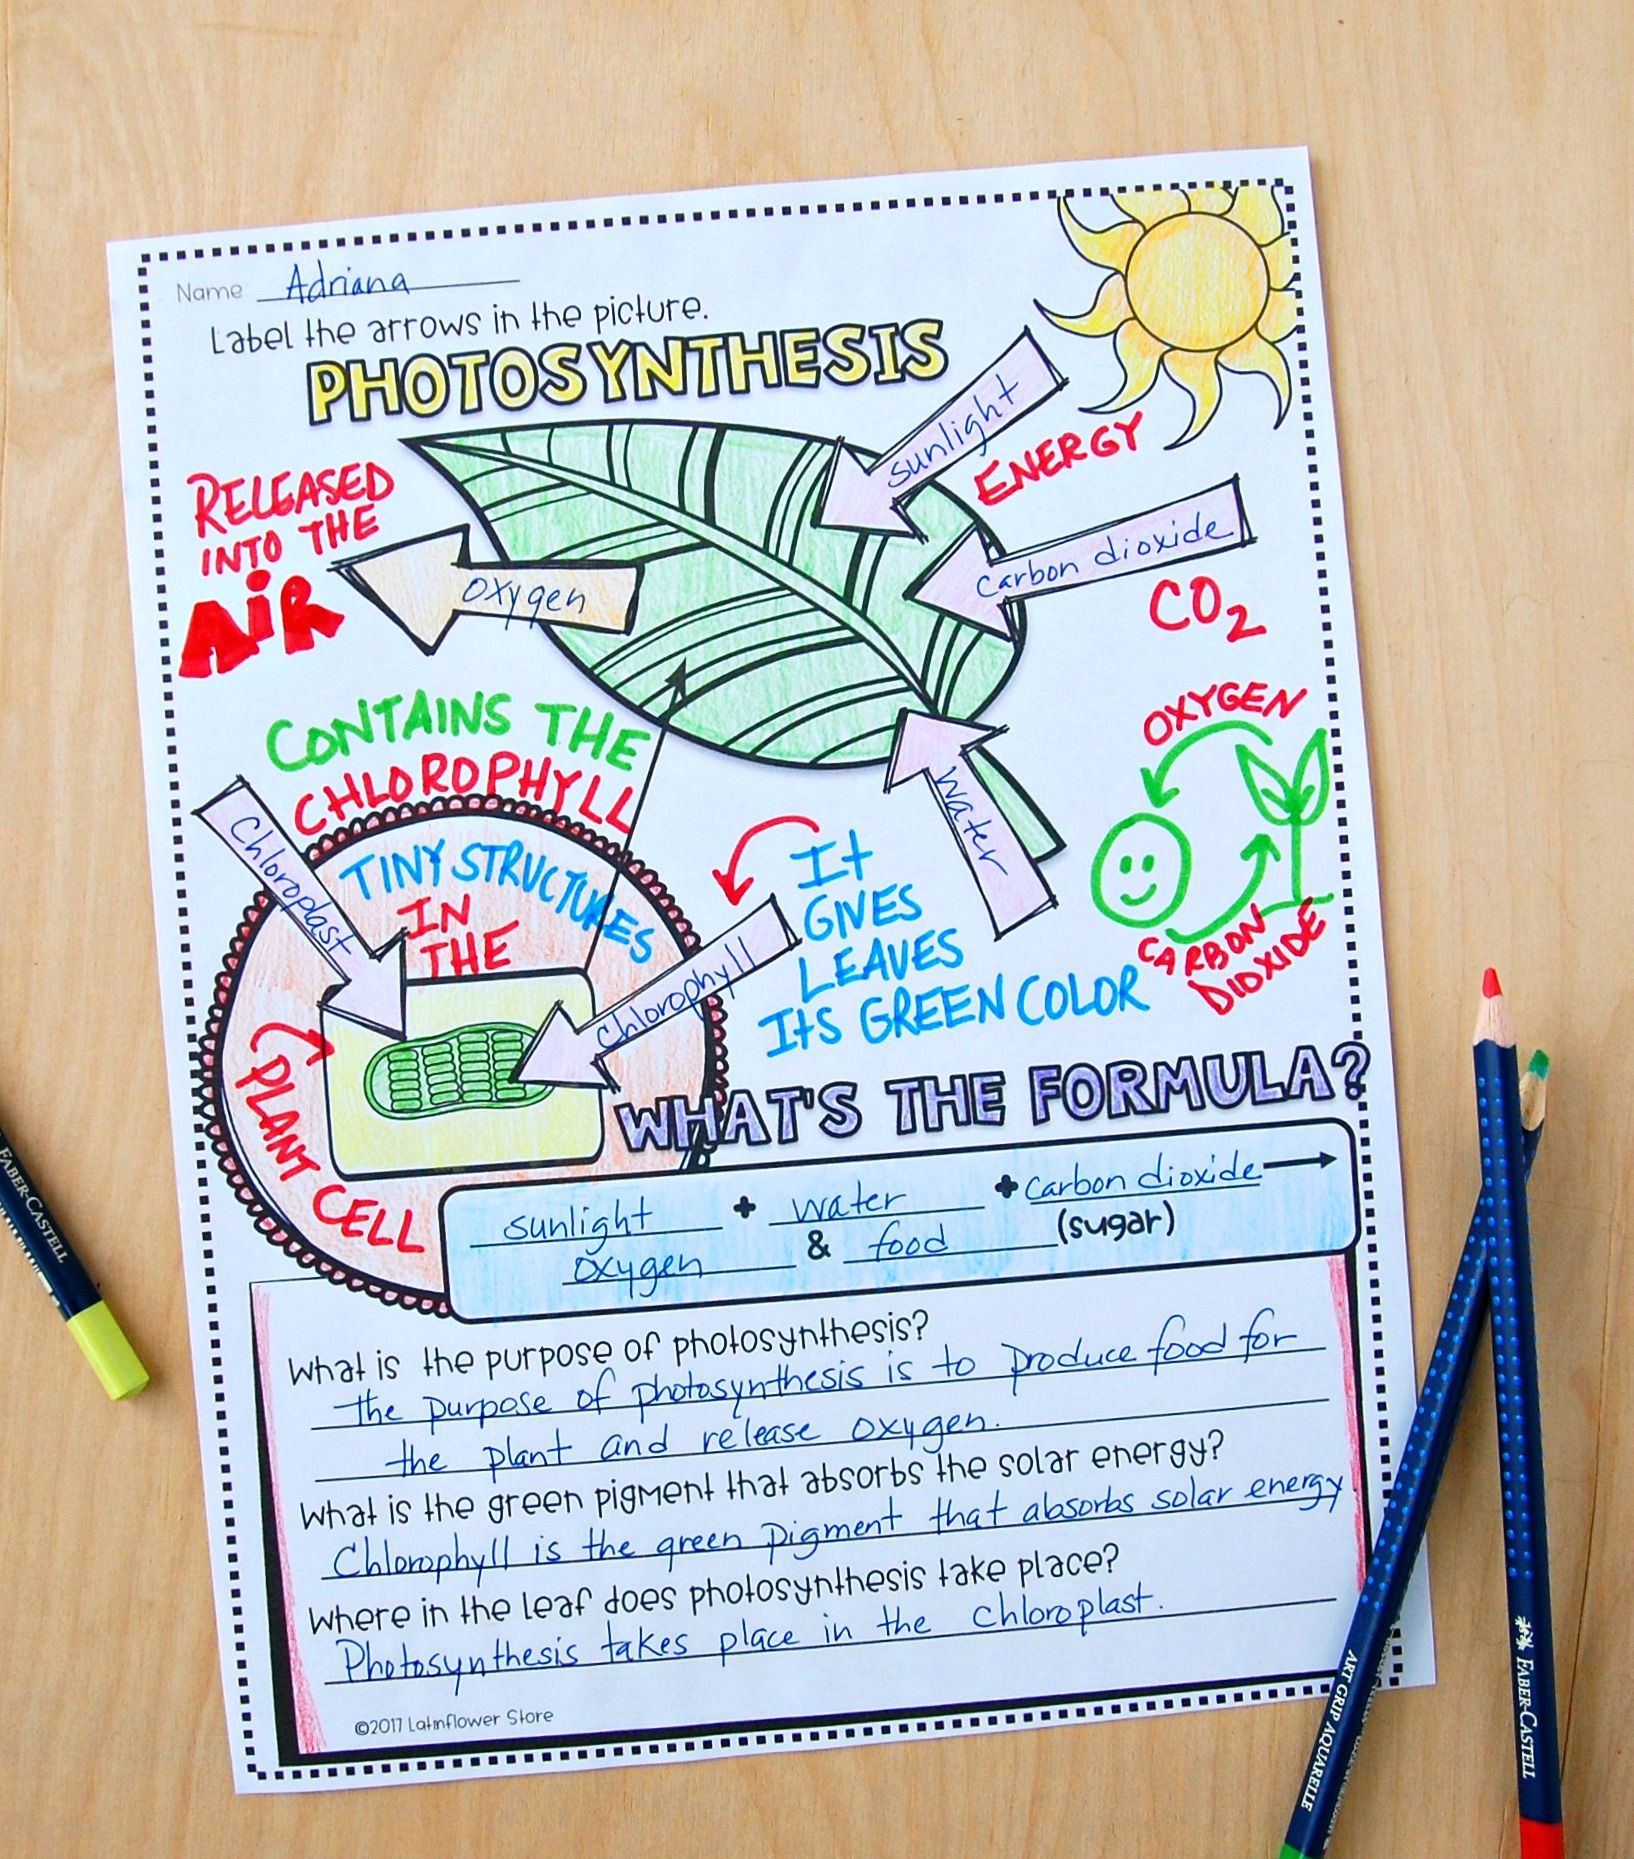 Name Adriana
Label the arrows in the picture.
PHOTOSYNTHESIS
sunlight
ENERGY
RELEASED
INTO THE
AiR
oxygen
carbon dioxide
CO2
CONTAINS THE
CHLOROPHYLL
OXYGEN
CARBON
DIOXIDE
water
Chloroplast
TINY STRUCTURES
IN
THE
PLANT CELL
chlorophyll
It
GIVES
LEAVES
ItS GREEN COLOR
WHAT'S THE FORMULA?
sunlight + water + carbon dioxide →
oxygen & food (sugar)
What is the purpose of photosynthesis?
the purpose of photosynthesis is to produce food for
the plant and release oxygen.
What is the green pigment that absorbs the solar energy?
Chlorophyll is the green pigment that absorbs solar energy
Where in the leaf does photosynthesis take place?
Photosynthesis takes place in the chloroplast.
©2017 Latinflower Store
FABER-CASTELL
ART GRIP AQUARELLE
FABER-CASTELL